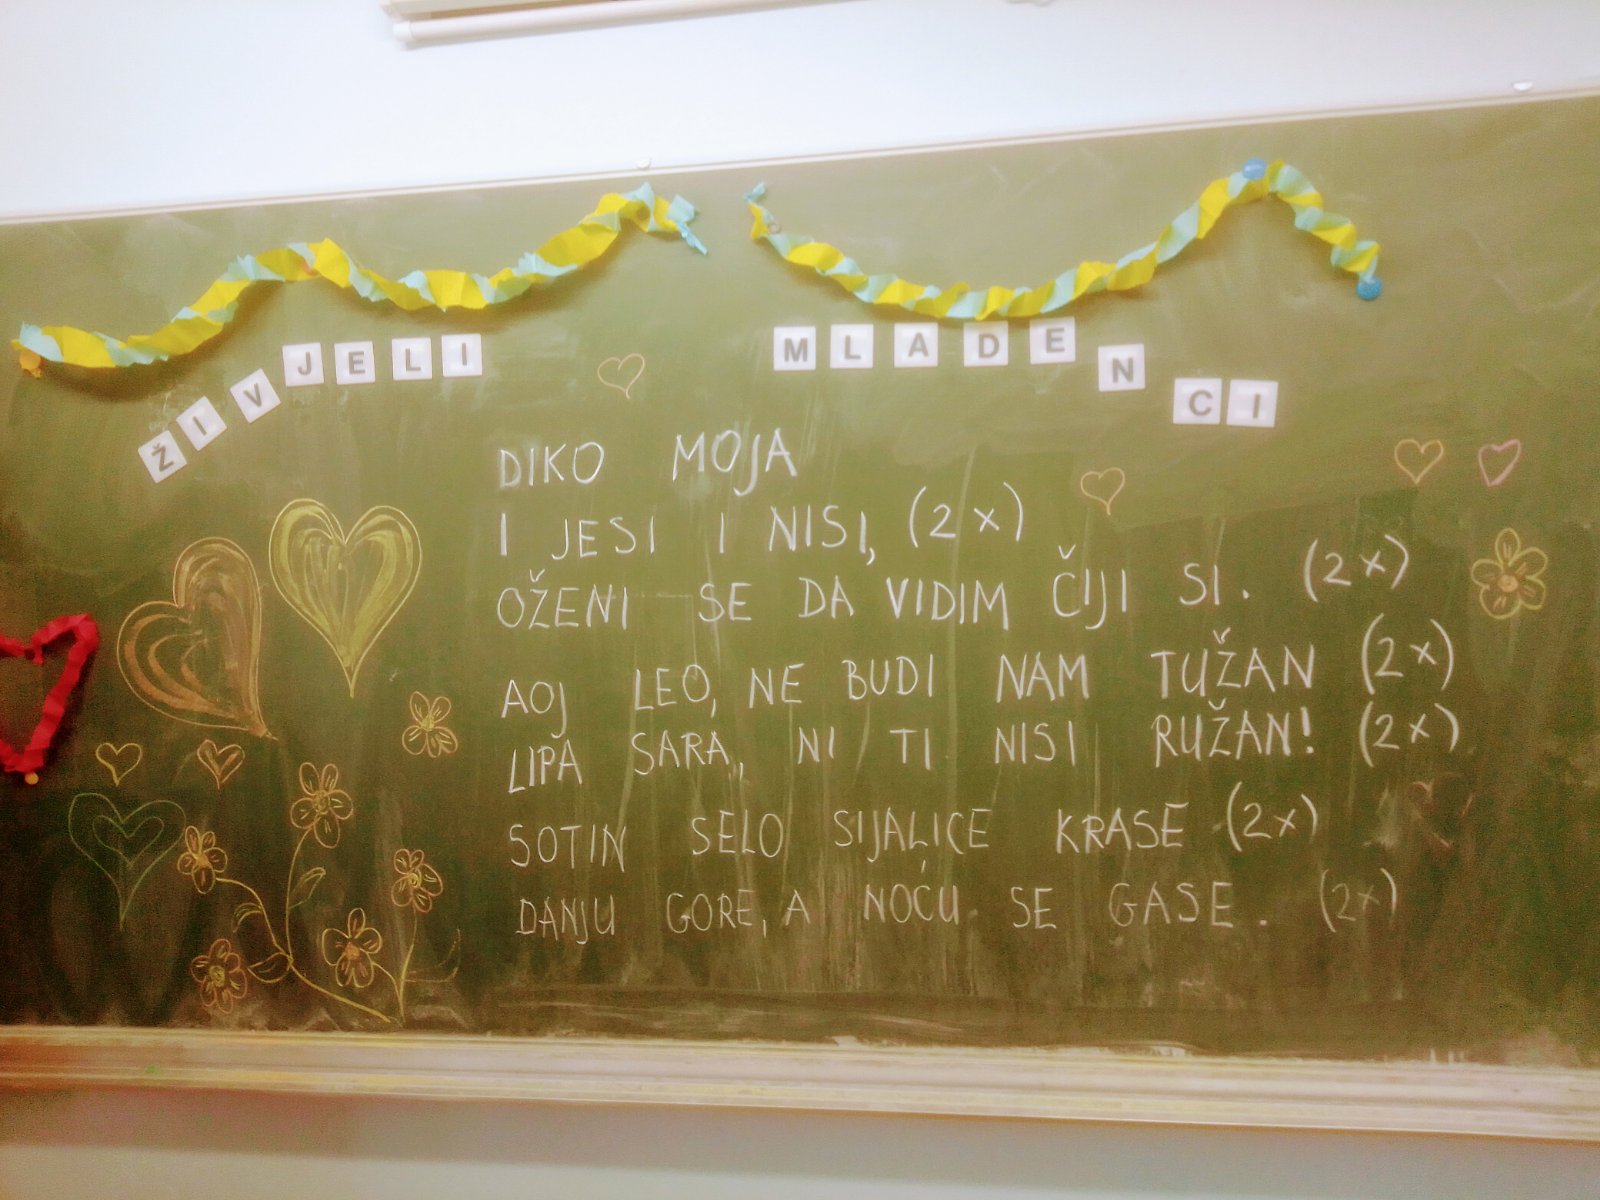 ŽIVJELI MLADENCI
DIKO MOJA
I JESI I NISI, (2x)
OŽENI SE DA VIDIM ČIJI SI. (2x)
AOJ LEO, NE BUDI NAM TUŽAN (2x)
LIPA SARA, NI TI NISI RUŽAN! (2x)
SOTIN SELO SIJALICE KRASE (2x)
DANJU GORE, A NOĆU SE GASE. (2x)